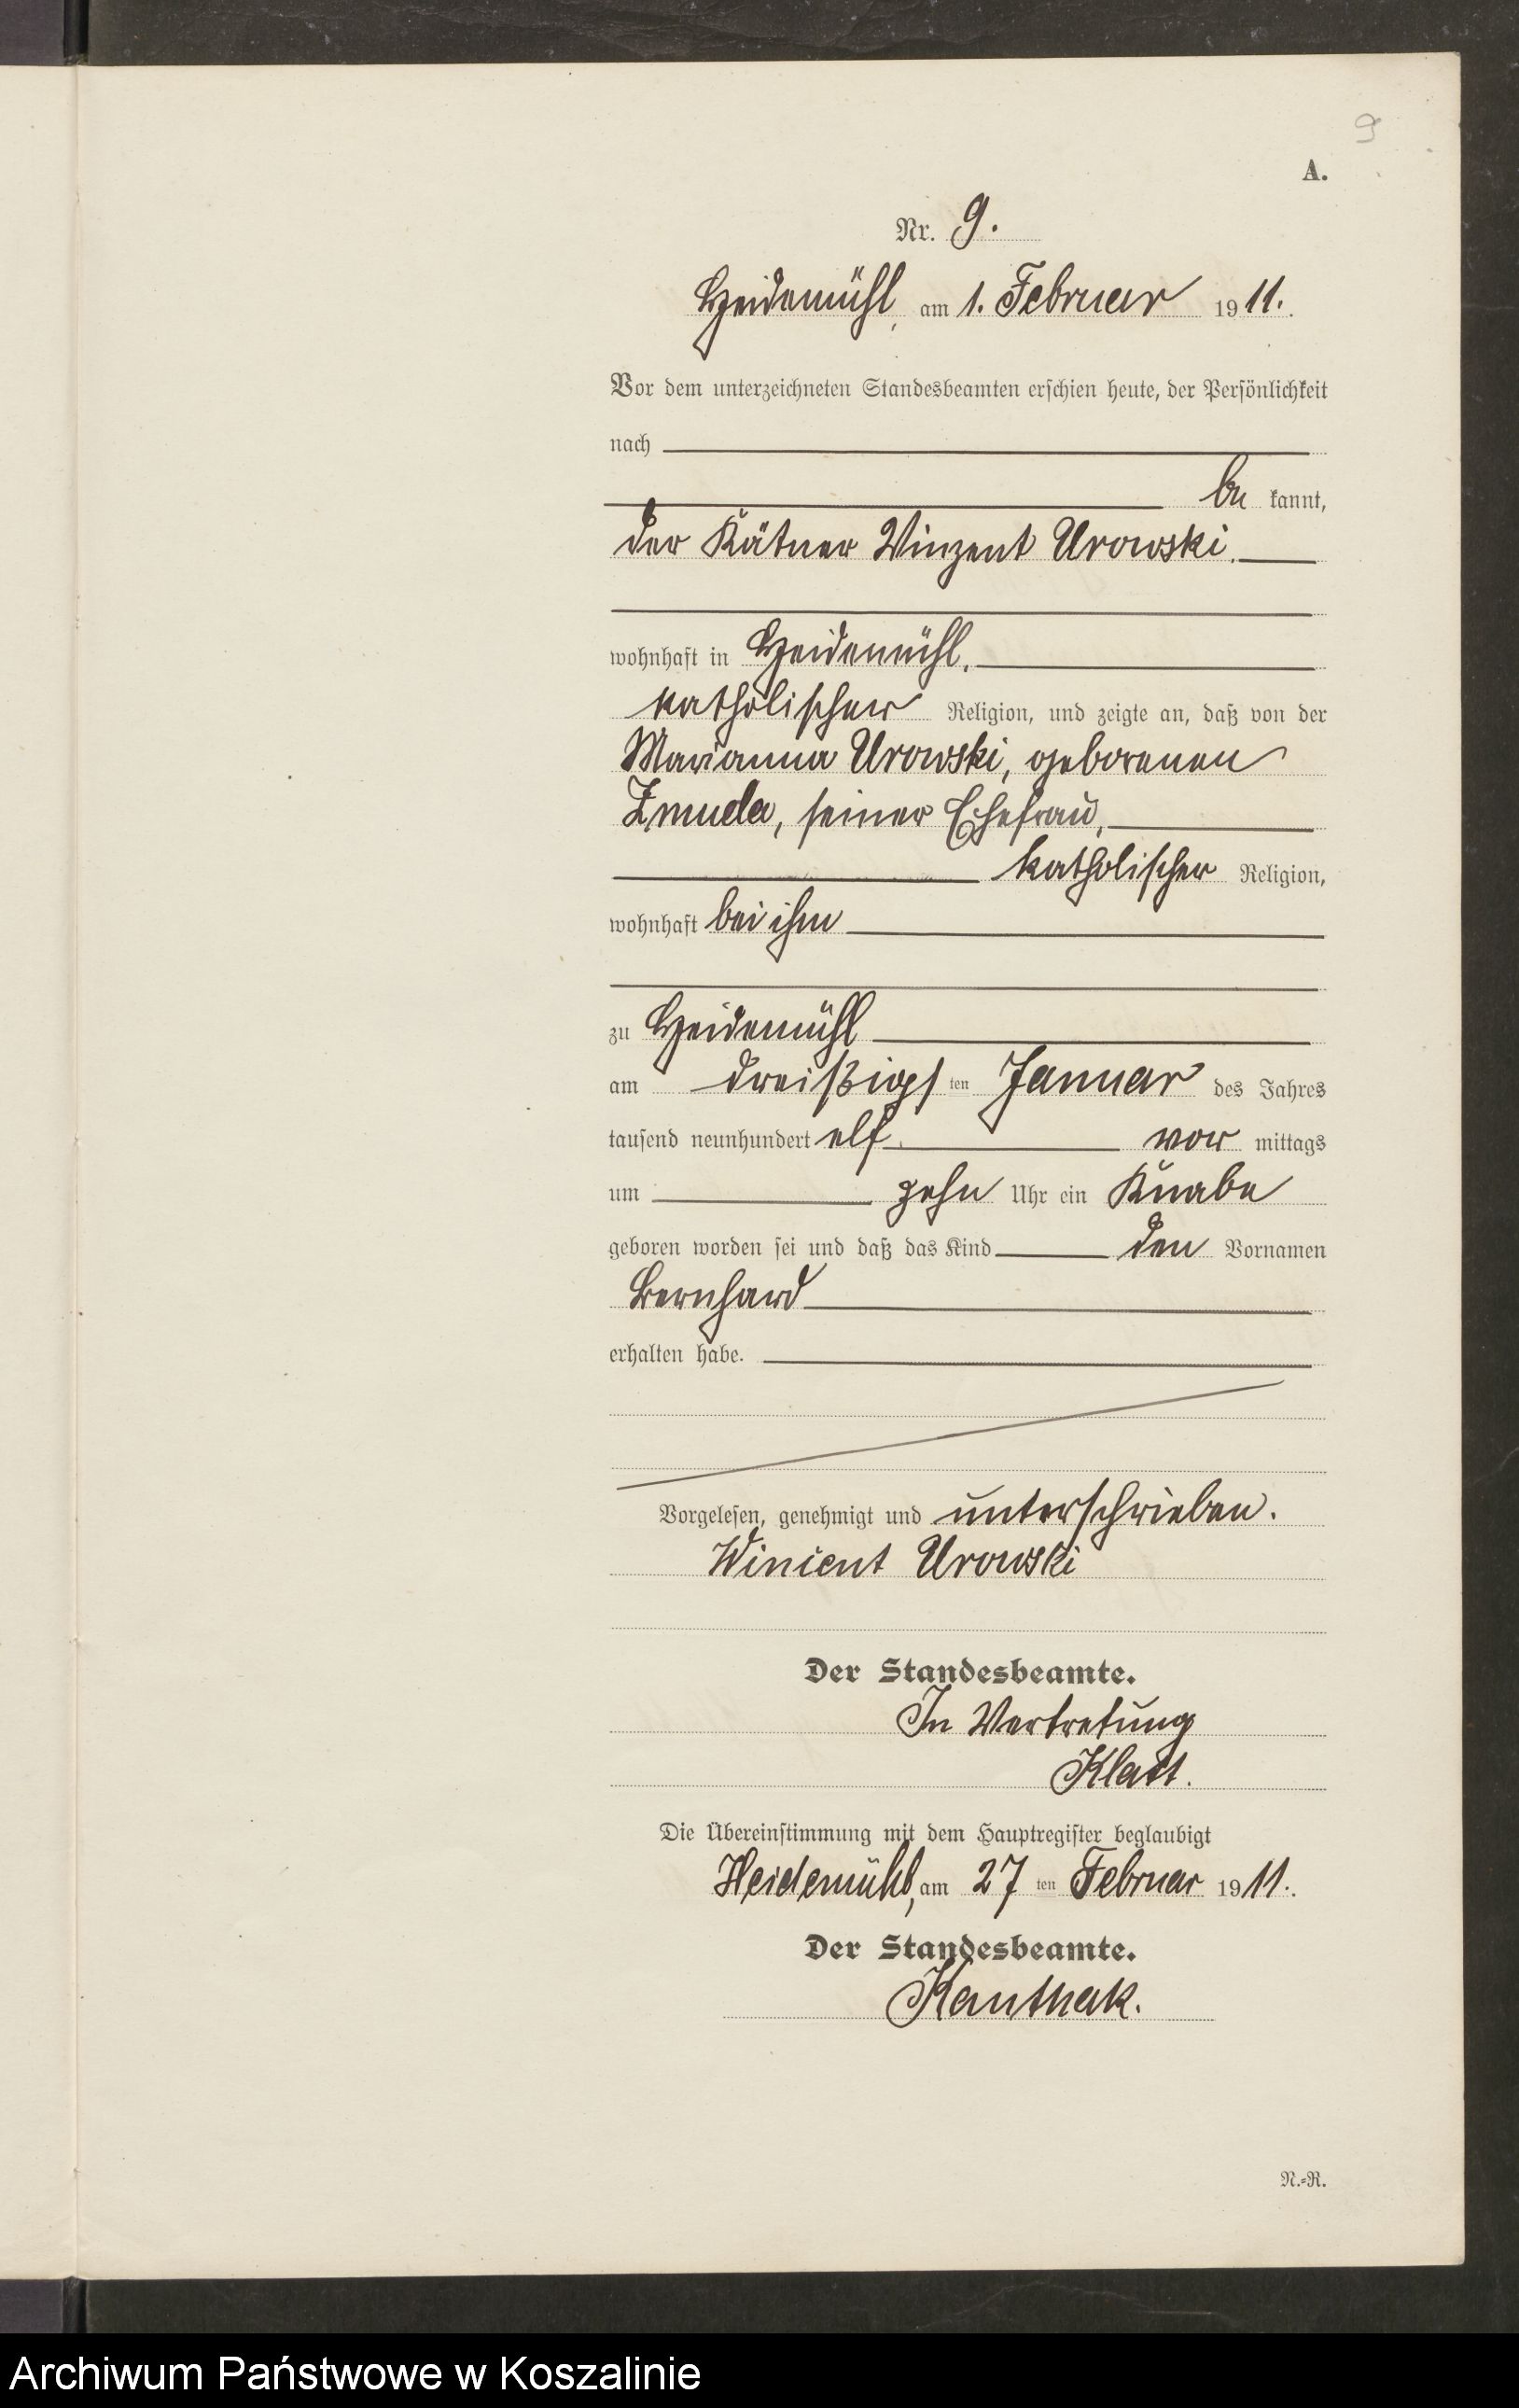 9
A.
Nr. 9.
Heidemühl, am 1. Februar 1911.
Vor dem unterzeichneten Standesbeamten erschien heute, der Persönlichkeit
nach
be kannt,
der Kätner Vinzent Urowski.
wohnhaft in Heidemühl,
katholischer Religion, und zeigte an, daß von der
Marianna Urowski, geborenen
Zmuda, seiner Ehefrau,
katholischer Religion,
wohnhaft bei ihm
zu Heidemühl
am dreißigsten Januar des Jahres
tausend neunhundert elf vor mittags
um zehn Uhr ein Knabe
geboren worden sei und daß das Kind den Vornamen
Bernhard
erhalten habe.
Vorgelesen, genehmigt und unterschrieben.
Wincent Urowski
Der Standesbeamte.
In Vertretung
Klatt.
Die Übereinstimmung mit dem Hauptregister beglaubigt
Heidemühl, am 27 ten Februar 1911.
Der Standesbeamte.
Kanthak.
N.-R.
Archiwum Państwowe w Koszalinie